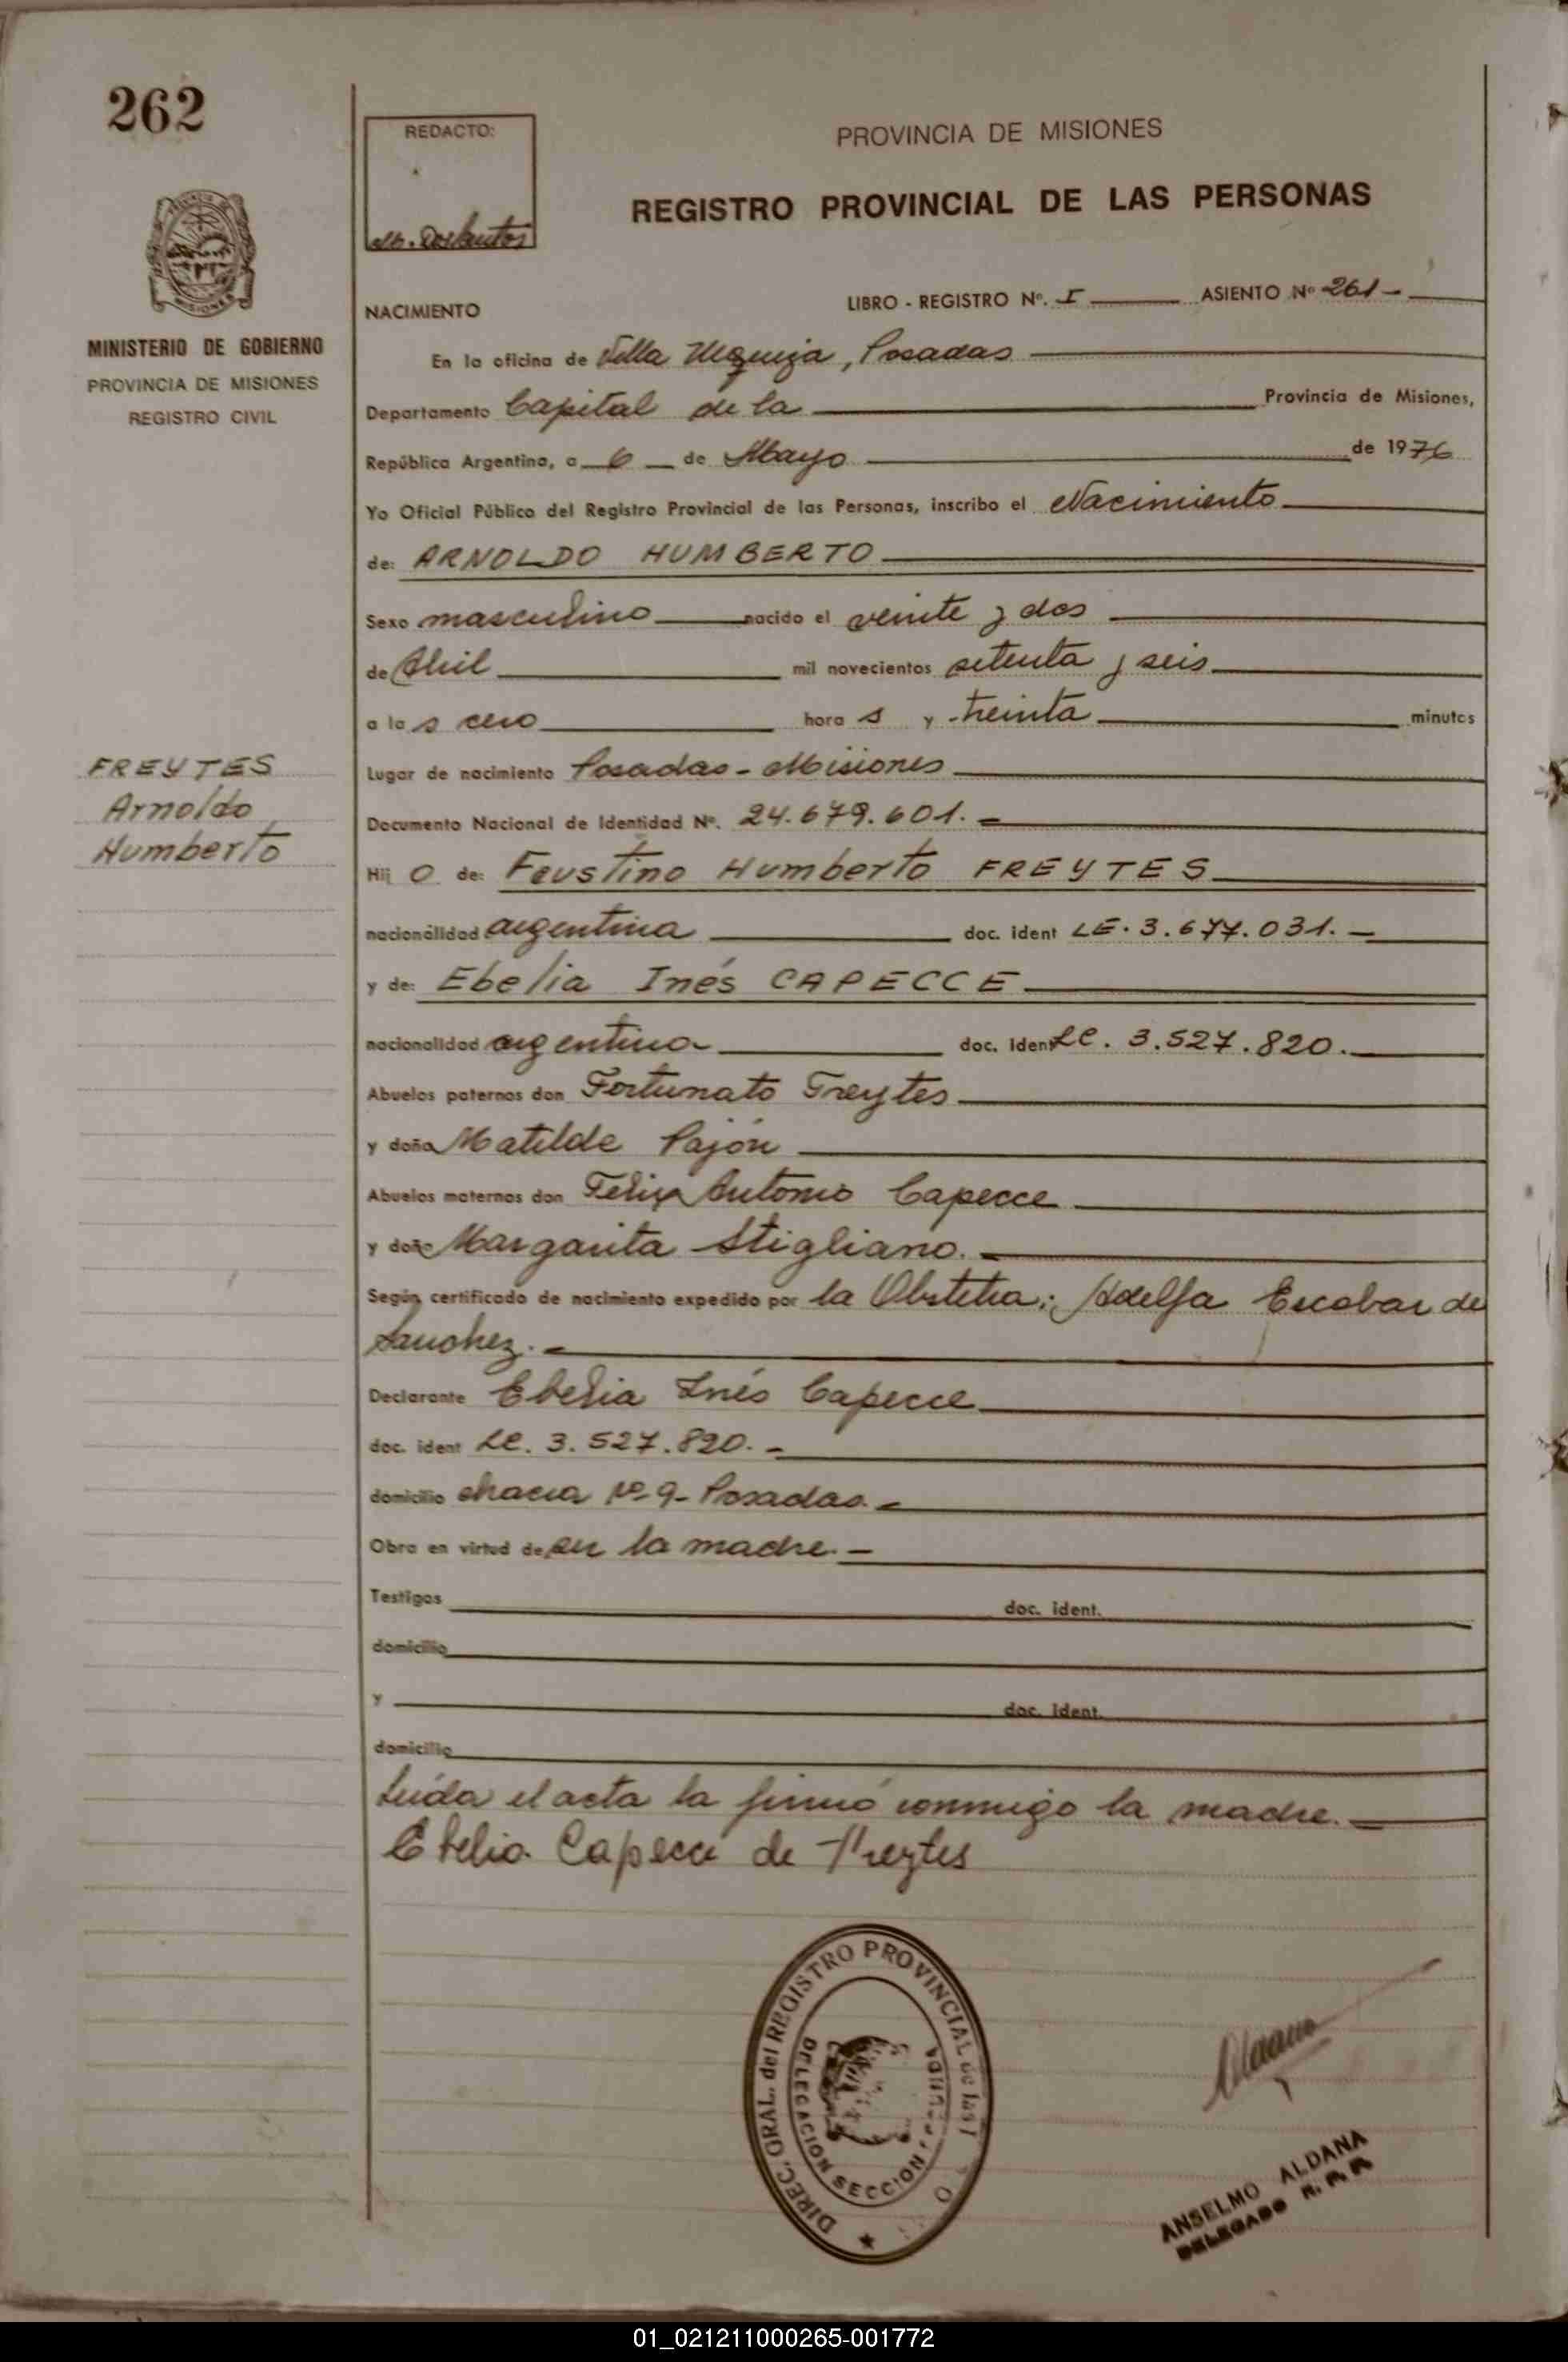 262
REDACTO:
PROVINCIA DE MISIONES
REGISTRO PROVINCIAL DE LAS PERSONAS
MISIONES
MINISTERIO DE GOBIERNO
PROVINCIA DE MISIONES
REGISTRO CIVIL
NACIMIENTO
LIBRO - REGISTRO Nº. I ASIENTO Nº 261 -
En la oficina de Villa Urquiza, Posadas
Departamento Capital de la Provincia de Misiones,
República Argentina, a 6 de Mayo de 1976
Yo Oficial Público del Registro Provincial de las Personas, inscribo el Nacimiento
de: ARNOLDO HUMBERTO
Sexo masculino nacido el veinte y dos
de Abril mil novecientos setenta y seis
a las cero horas y treinta minutos
Lugar de nacimiento Posadas - Misiones
Documento Nacional de Identidad Nº. 24.679.601. -
FREYTES
Arnoldo
Humberto
Hijo de: Faustino Humberto FREYTES
nacionalidad argentina doc. ident LE. 3.677.031. -
y de: Ebelia Inés CAPECCE
nacionalidad argentina doc. ident LC. 3.527.820.
Abuelos paternos don Fortunato Freytes
y doña Matilde Pajón
Abuelos maternos don Felix Antonio Capecce
y doña Margarita Stigliano. -
Según certificado de nacimiento expedido por la Obstetra: Adelfa Escobar de
Sanchez. -
Declarante Ebelia Inés Capecce
doc. ident LC. 3.527.820. -
domicilio chacra Nº 9 - Posadas. -
Obra en virtud de ser la madre. -
Testigos doc. ident.
domicilio
y doc. ident.
domicilio
Leída el acta la firmó conmigo la madre. -
Ebelia Capecce de Freytes
DIREC. GRAL. del REGISTRO PROVINCIAL de las
DELEGACION SECCION
ANSELMO ALDANA
DELEGADO R. P. P.
01_021211000265-001772